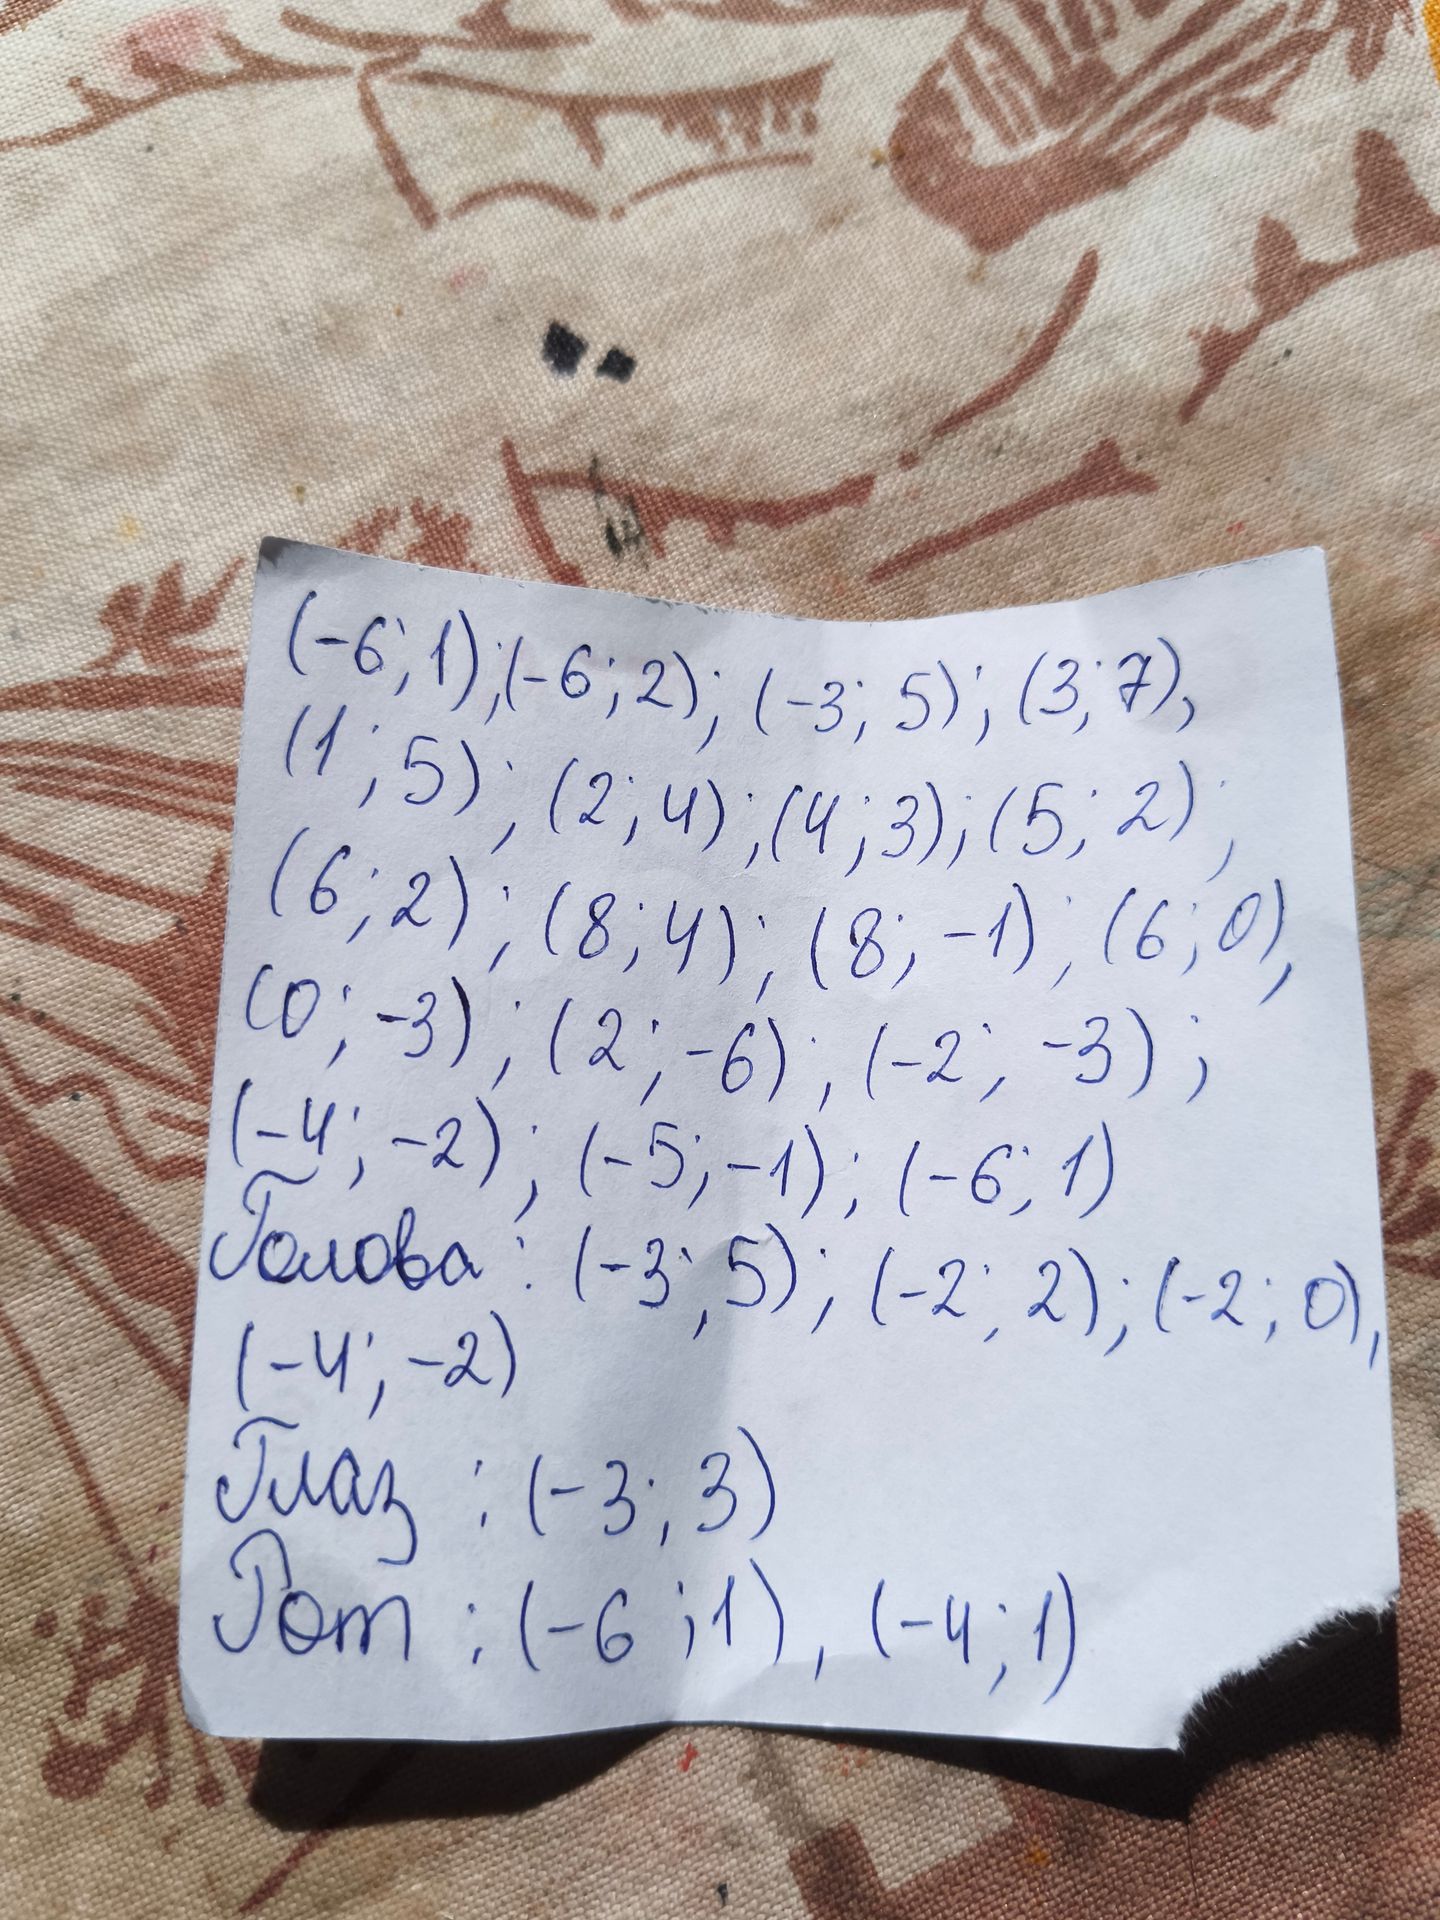 (-6; 1); (-6; 2); (-3; 5); (3; 7),
(1; 5); (2; 4); (4; 3); (5; 2);
(6; 2); (8; 4); (8; -1); (6; 0),
(0; -3); (2; -6); (-2; -3);
(-4; -2); (-5; -1); (-6; 1)
Голова: (-3; 5); (-2; 2); (-2; 0),
(-4; -2)
Глаз: (-3; 3)
Рот: (-6; 1), (-4; 1)